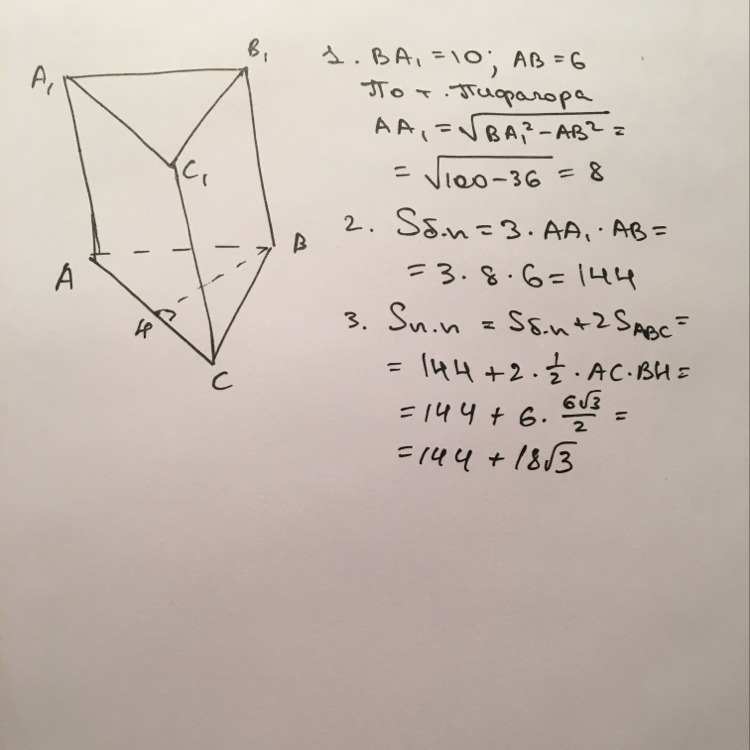 A₁
B₁
C₁
A
B
C
H
1. BA₁ = 10; AB = 6
По т. Пифагора
AA₁ = √(BA₁² − AB²) =
= √(100 − 36) = 8
2. Sб.п = 3 · AA₁ · AB =
= 3 · 8 · 6 = 144
3. Sп.п = Sб.п + 2S_ABC =
= 144 + 2 · 1/2 · AC · BH =
= 144 + 6 · 6√3/2 =
= 144 + 18√3